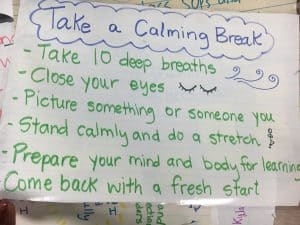 Take a Calming Break
- Take 10 deep breaths
- Close your eyes
- Picture something or someone you
- Stand calmly and do a stretch
- Prepare your mind and body for learning
Come back with a fresh start